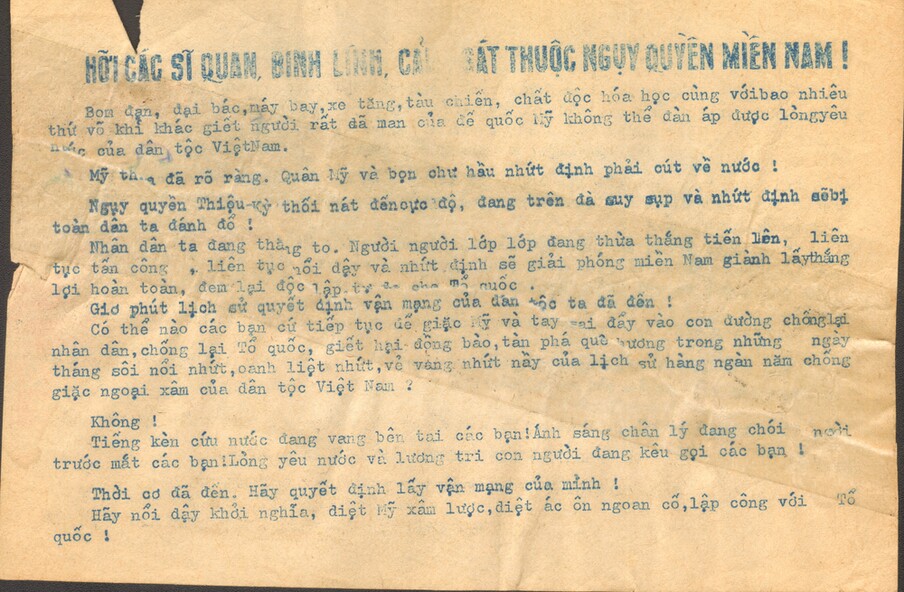 HỠI CÁC SĨ QUAN, BINH LÍNH, SÁT THUỘC NGỤY QUYỀN MIỀN NAM !
Bom đạn, đại bác,máy bay,xe tăng,tàu chiến, chất độc hóa học cùng vớibao nhiêu
thứ võ khí khác giết người rất dã man của đế quốc Mỹ không thể đàn áp được lòngyêu
nước của dân tộc ViệtNam.
Mỹ đã rõ ràng. Quân Mỹ và bọn chư hầu nhứt định phải cút về nước !
Ngụy quyền Thiệu-Kỳ thối nát đếncực độ, đang trên đà suy sụp và nhứt định sẽbị
toàn dân ta đánh đổ !
Nhân dân ta đang thắng to. Người người lớp lớp đang thừa thắng tiến lên, liên
tục tấn công , liên tục nổi dậy và nhứt định sẽ giải phóng miền Nam giành lấythắng
lợi hoàn toàn, đem lại độc lập tự do cho Tổ quốc .
Giờ phút lịch sử quyết định vận mạng của dân tộc ta đã đến !
Có thể nào các bạn cứ tiếp tục để giặc Mỹ và tay sai đẩy vào con đường chốnglại
nhân dân,chống lại Tổ quốc, giết hại đồng bào,tàn phá quê hương trong những ngày
tháng sôi nổi nhứt,oanh liệt nhứt,vẻ vang nhứt nầy của lịch sử hàng ngàn năm chống
giặc ngoại xâm của dân tộc Việt Nam ?
Không !
Tiếng kèn cứu nước đang vang bên tai các bạn!Ánh sáng chân lý đang chói ngời
trước mắt các bạn!Lòng yêu nước và lương tri con người đang kêu gọi các bạn !
Thời cơ đã đến. Hãy quyết định lấy vận mạng của mình !
Hãy nổi dậy khởi nghĩa, diệt Mỹ xâm lược,diệt ác ôn ngoan cố,lập công với Tổ
quốc !